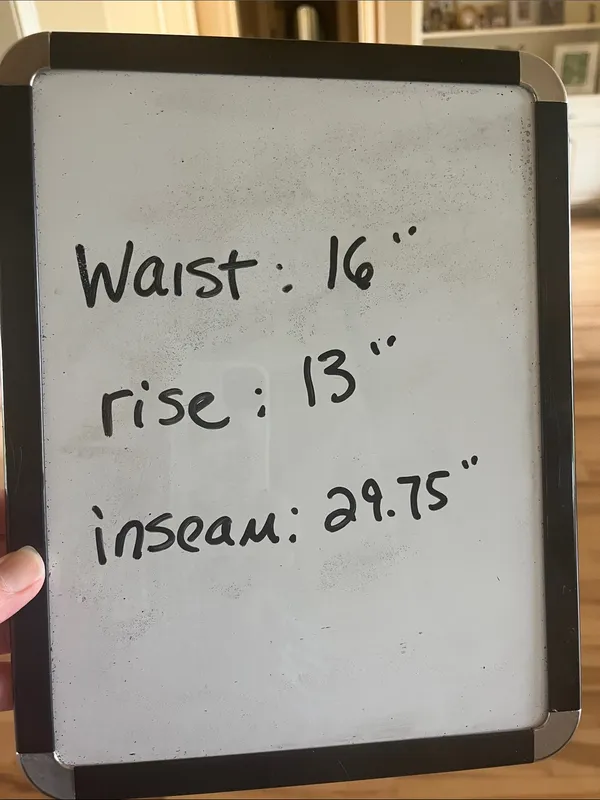 Waist: 16"
rise: 13"
inseam: 29.75"